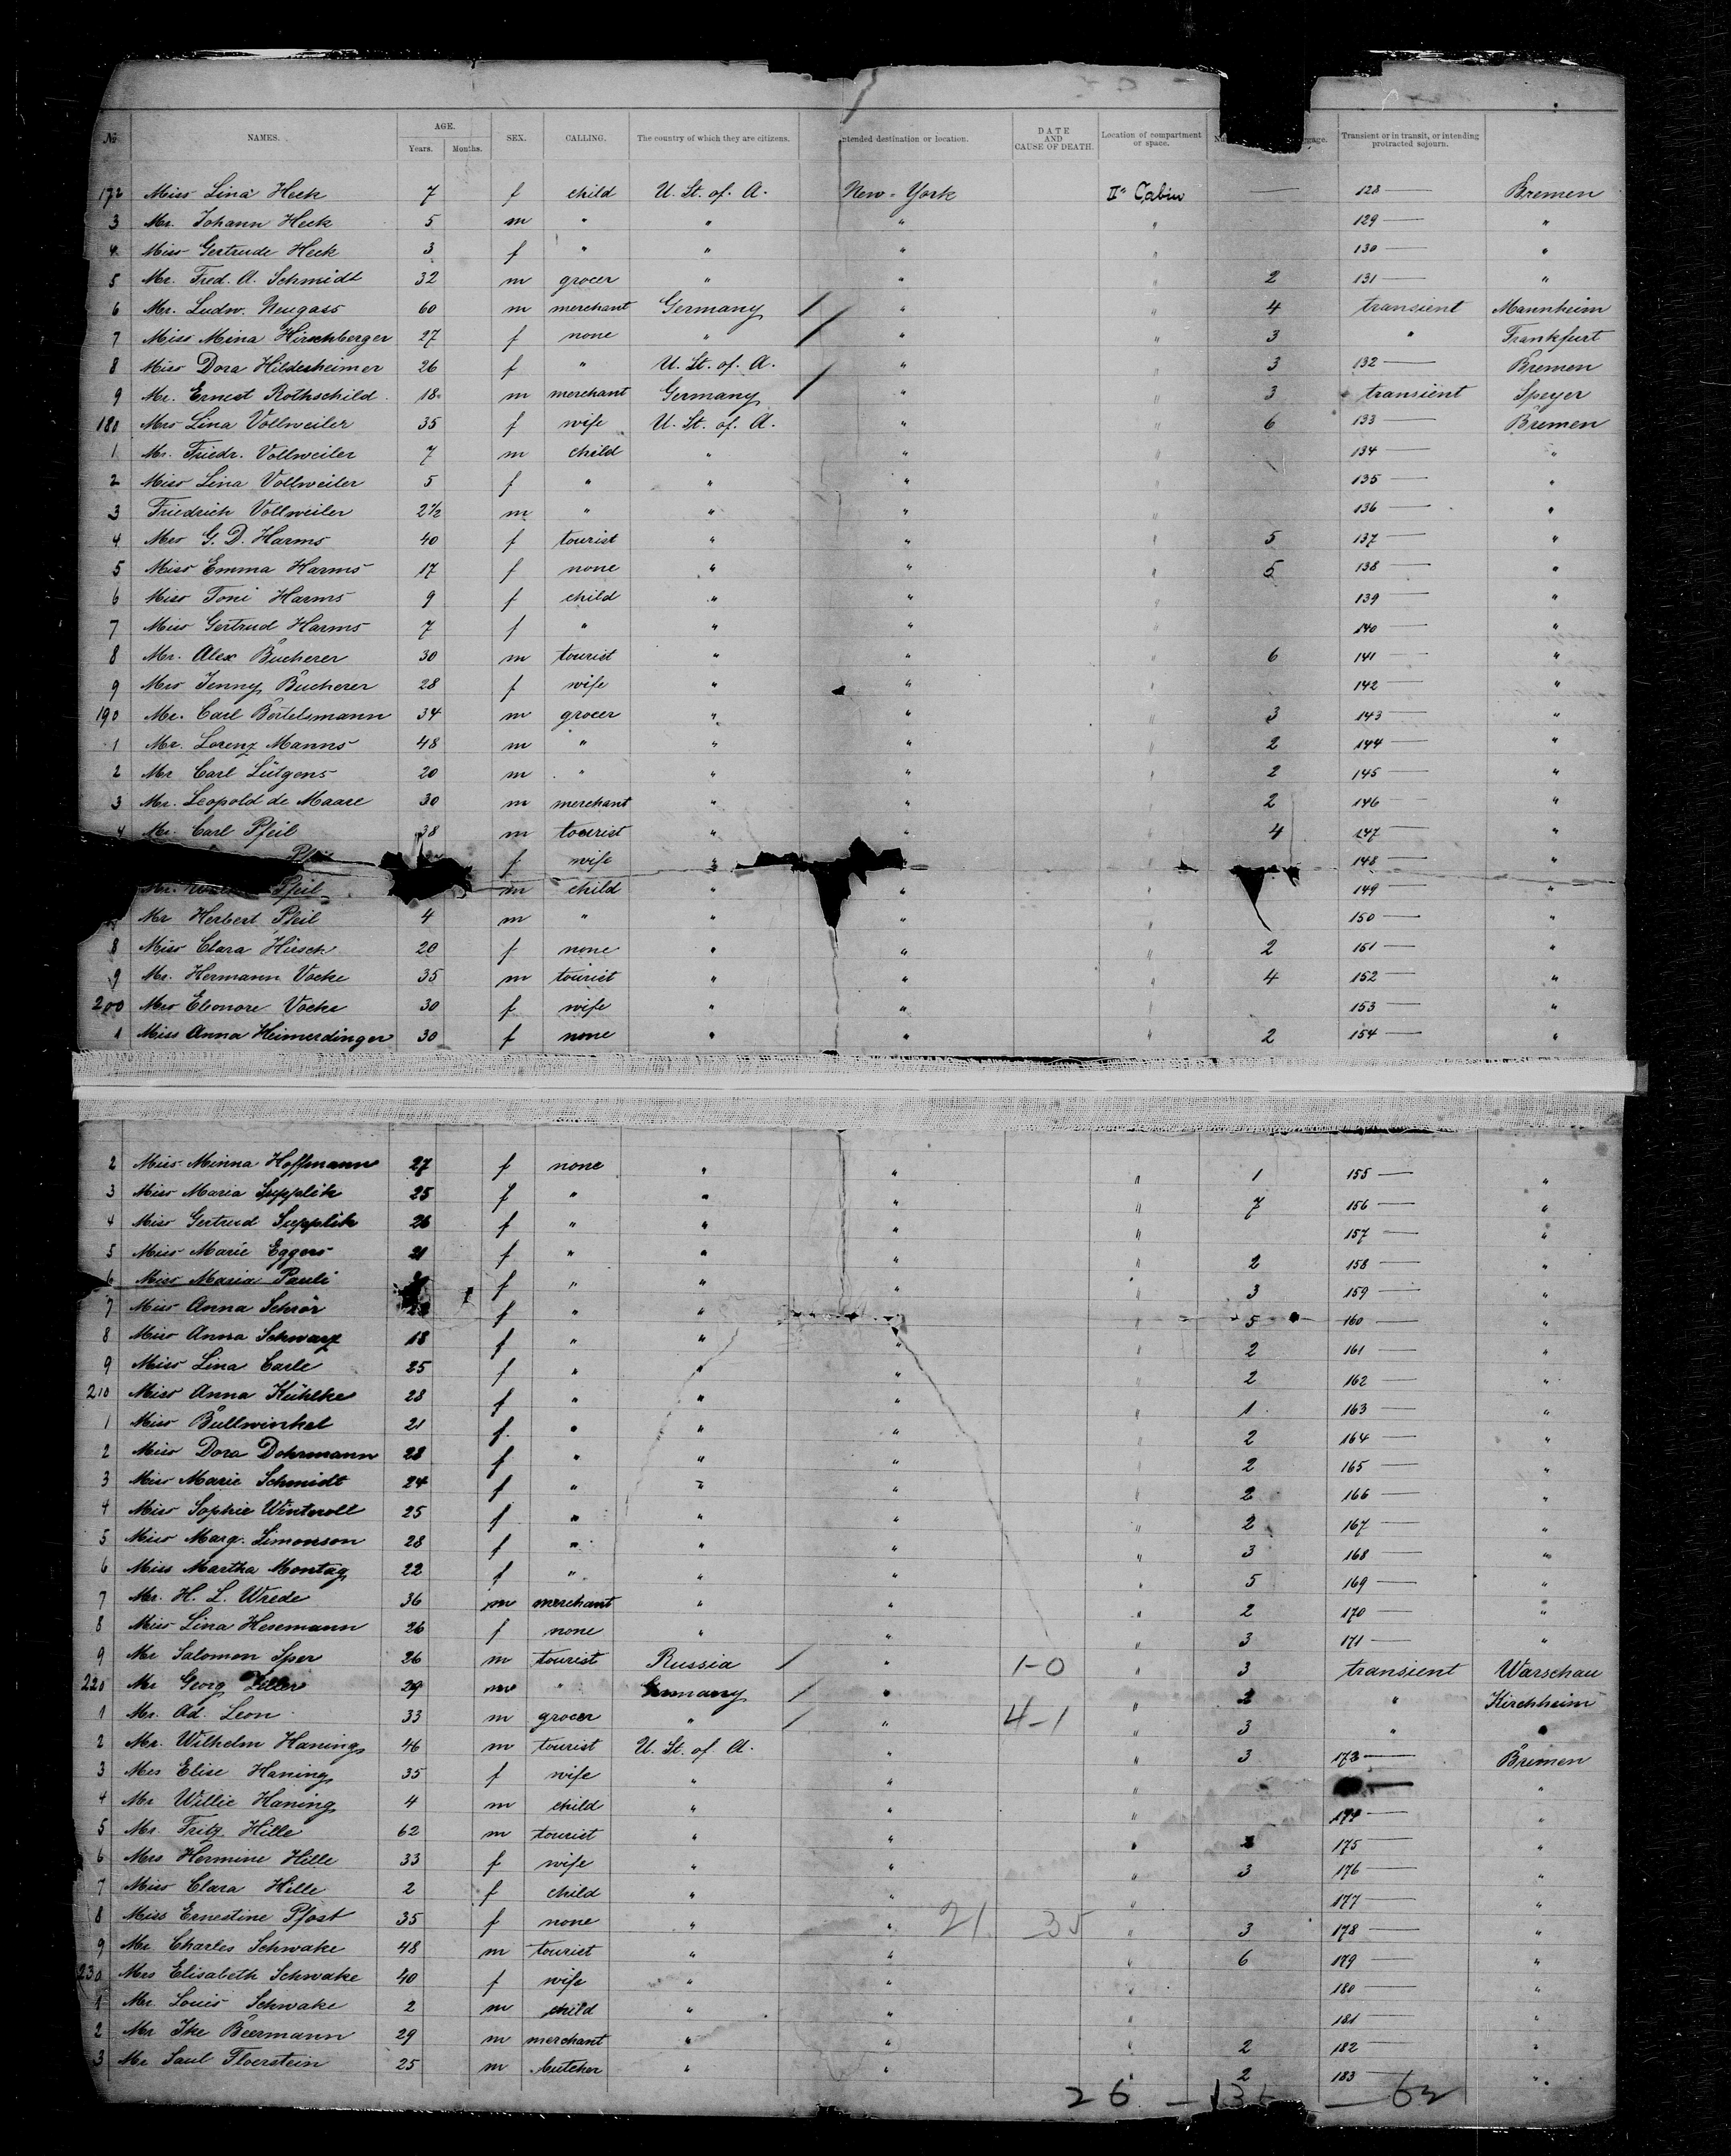 № NAMES. AGE. Years. Months. SEX. CALLING. The country of which they are citizens. ntended destination or location. DATE AND CAUSE OF DEATH. Location of compartment or space. Transient or in transit, or intending protracted sojourn.
172 Miss Lina Heck 7 f child U. St. of. A. New-York II" Cabin — 128 — Bremen
3 Mr. Johann Heck 5 m " " " " 129 — "
4 Miss Gertrude Heck 3 f " " " " 130 — "
5 Mr. Fred. A. Schmidt 32 m grocer " " " 2 131 — "
6 Mr. Ludw. Neugass 60 m merchant Germany / " " 4 transient Mannheim
7 Miss Mina Hirschberger 27 f none " / " " 3 " Frankfurt
8 Miss Dora Hildesheimer 26 f " U. St. of. A. " " 3 132 — Bremen
9 Mr. Ernest Rothschild 18 m merchant Germany / " " 3 transient Speyer
180 Mrs Lina Vollweiler 35 f wife U. St. of. A. " " 6 133 — Bremen
1 Mr. Friedr. Vollweiler 7 m child " " " 134 — "
2 Miss Lina Vollweiler 5 f " " " " 135 — "
3 Friedrich Vollweiler 2½ m " " " " 136 — "
4 Mrs G. D. Harms 40 f tourist " " " 5 137 — "
5 Miss Emma Harms 17 f none " " " 5 138 — "
6 Miss Toni Harms 9 f child " " " 139 — "
7 Miss Gertrud Harms 7 f " " " " 140 — "
8 Mr. Alex Bucherer 30 m tourist " " " 6 141 — "
9 Mrs Jenny Bucherer 28 f wife " " " 142 — "
190 Mr. Carl Börtelsmann 34 m grocer " " " 3 143 — "
1 Mr. Lorenz Manns 48 m " " " " 2 144 — "
2 Mr Carl Lütgens 20 m " " " " 2 145 — "
3 Mr. Leopold de Maare 30 m merchant " " " 2 146 — "
4 Mr. Carl Pfeil 38 m tourist " " " 4 147 — "
f wife " " " 148 — "
Mr. Pfeil m child " " " 149 — "
Mr Herbert Pfeil 4 m " " " " 150 — "
8 Miss Clara Hirsch 20 f none " " " 2 151 — "
9 Mr. Hermann Vocke 35 m tourist " " " 4 152 — "
200 Mrs Eleonore Vocke 30 f wife " " " 153 — "
1 Miss Anna Heimerdinger 30 f none " " " 2 154 — "
2 Miss Minna Hoffmann 27 f none " " " 1 155 — "
3 Miss Maria Supplik 25 f " " " " 7 156 — "
4 Miss Gertrud Supplik 26 f " " " " 157 — "
5 Miss Marie Eggers 21 f " " " " 2 158 — "
6 Miss Maria Pauli f " " " " 3 159 — "
7 Miss Anna Schrör f " " " " 5 160 — "
8 Miss Anna Schwarz 18 f " " " " 2 161 — "
9 Miss Lina Carle 25 f " " " " 2 162 — "
210 Miss Anna Kühlke 28 f " " " " 1 163 — "
1 Miss Bullwinkel 21 f " " " " 2 164 — "
2 Miss Dora Dohrmann 28 f " " " " 2 165 — "
3 Miss Marie Schmidt 24 f " " " " 2 166 — "
4 Miss Sophie 25 f " " " " 2 167 — "
5 Miss Marg. Simonson 28 f " " " " 3 168 — "
6 Miss Martha Montag 22 f " " " " 5 169 — "
7 Mr. H. L. Wrede 36 m merchant " " " 2 170 — "
8 Miss Lina Hesemann 26 f none " " " 3 171 — "
9 Mr Salomon Sper 26 m tourist Russia / " 1-0 " 3 transient Warschau
220 Mr Georg Ziller 29 m " Germany / " " 2 " Kirchheim
1 Mr. Ad. Leon 33 m grocer " / " 4-1 " 3 " "
2 Mr. Wilhelm Haning 46 m tourist U. St. of. A. " " 3 173 — Bremen
3 Mrs Elise Haning 35 f wife " " " — "
4 Mr Willie Haning 4 m child " " " 174 — "
5 Mr. Fritz Hille 62 m tourist " " " 175 — "
6 Mrs Hermine Hille 33 f wife " " " 3 176 — "
7 Miss Clara Hille 2 f child " " " 177 — "
8 Miss Ernestine Pfost 35 f none " " 21 35 " 3 178 — "
9 Mr Charles Schwake 48 m tourist " " " 6 179 — "
230 Mrs Elisabeth Schwake 40 f wife " " " 180 — "
1 Mr. Louis Schwake 2 m child " " " 181 — "
2 Mr Ike Beermann 29 m merchant " " " 2 182 — "
3 Mr Saul Floerstein 25 m butcher " " " 2 183 — "
26 — 136 — 62